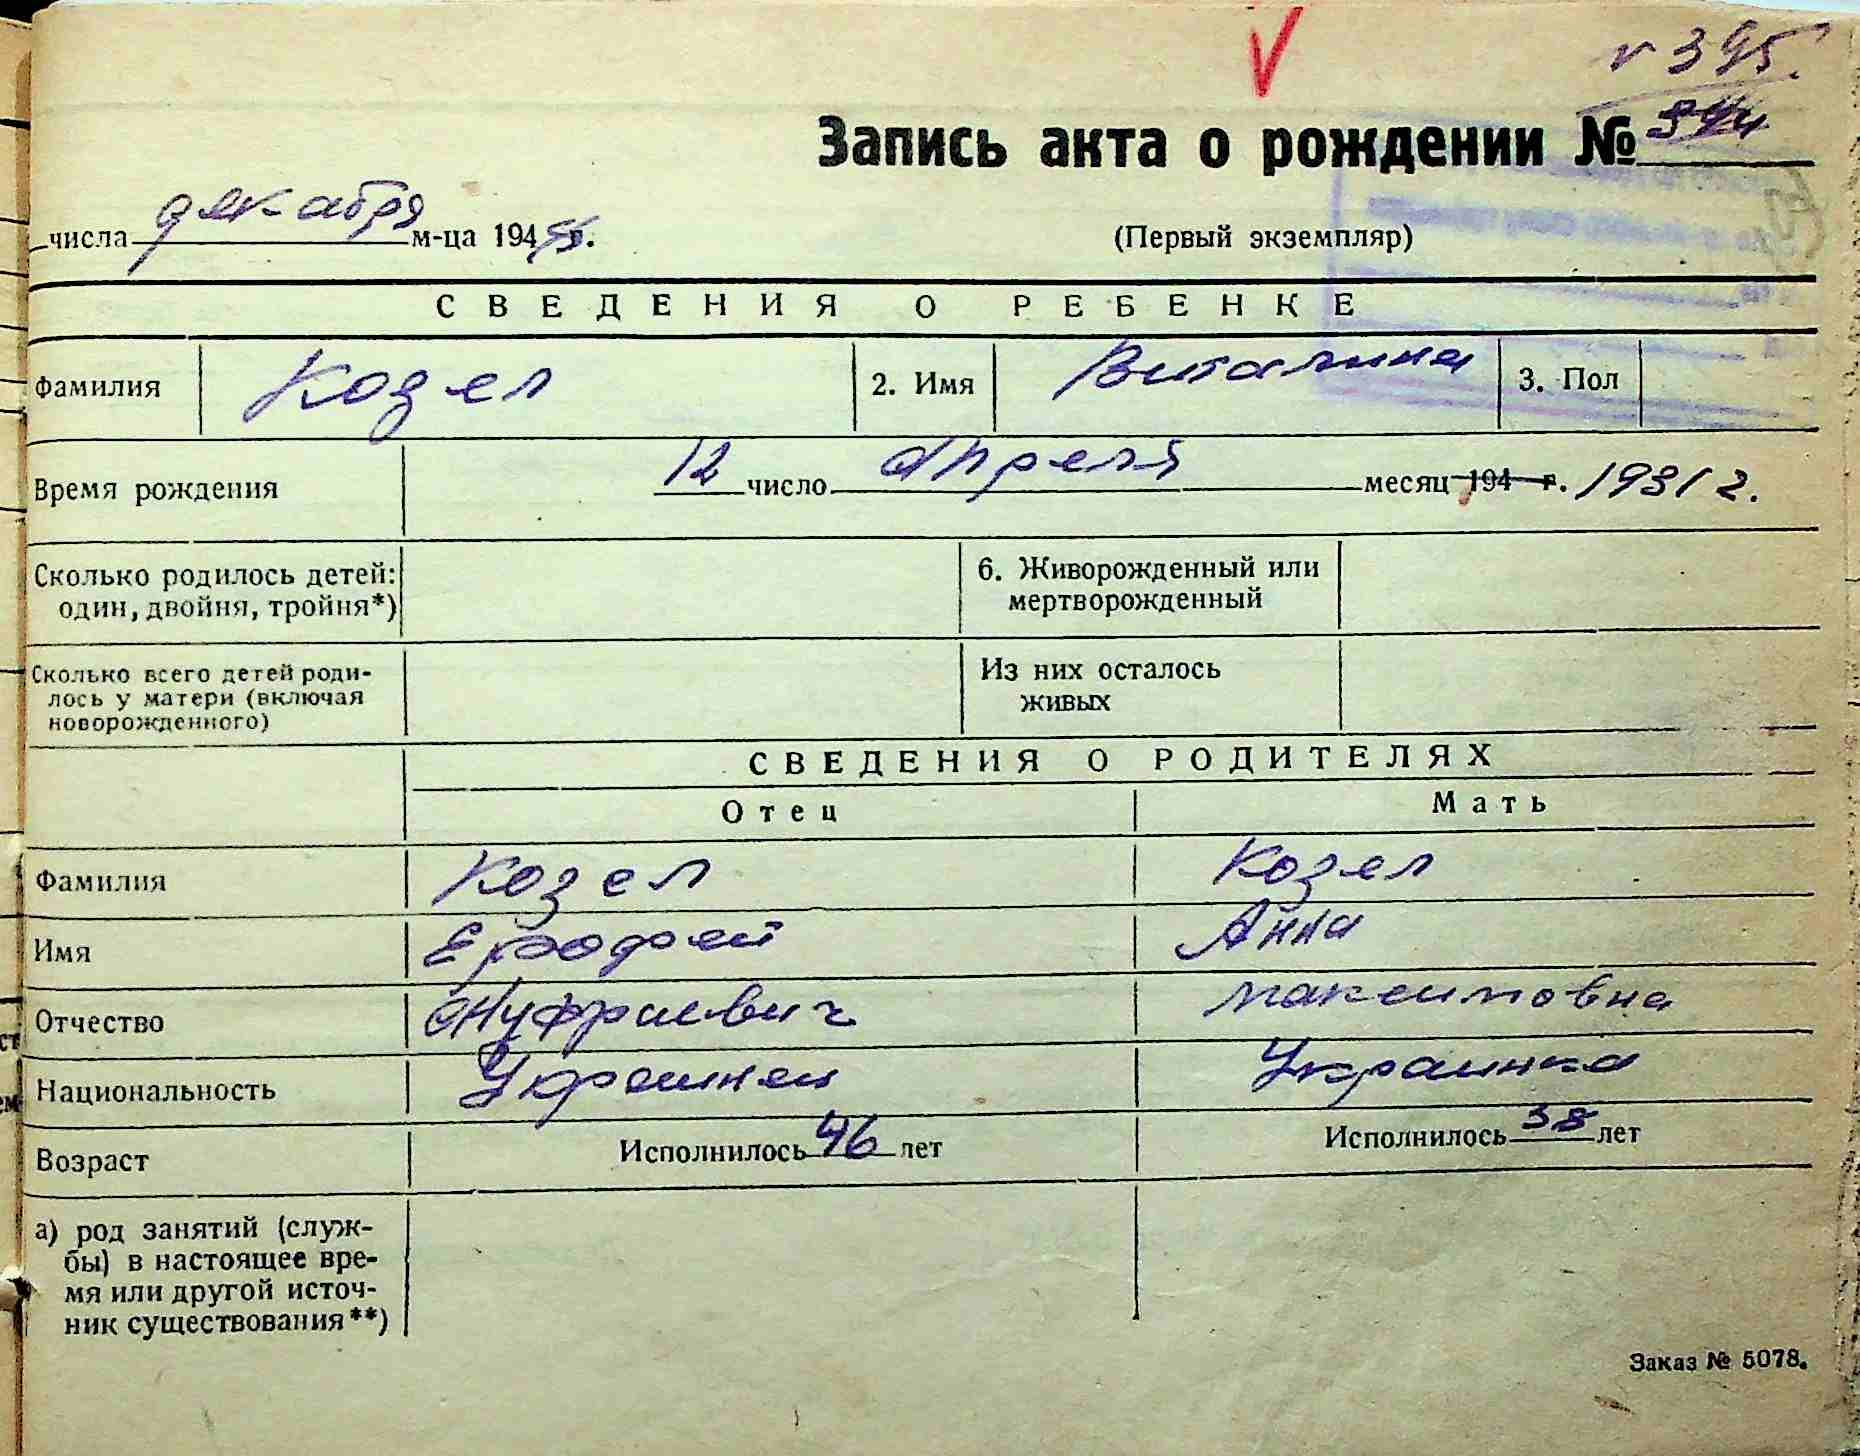 395.
Запись акта о рождении № 344
числа декабря м-ца 194 г.
(Первый экземпляр)
СВЕДЕНИЯ О РЕБЕНКЕ
Фамилия Козел 2. Имя Виталина 3. Пол
Время рождения 12 число апреля месяц 194 г. 1931 г.
Сколько родилось детей: 6. Живорожденный или
один, двойня, тройня*) мертворожденный
Сколько всего детей роди- Из них осталось
лось у матери (включая живых
новорожденного)
СВЕДЕНИЯ О РОДИТЕЛЯХ
Отец Мать
Фамилия Козел Козел
Имя Ерофей Анна
Отчество Онуфриевич Максимовна
Национальность Украинец Украинка
Возраст Исполнилось 46 лет Исполнилось 38 лет
а) род занятий (служ-
бы) в настоящее вре-
мя или другой источ-
ник существования**)
Заказ № 5078.